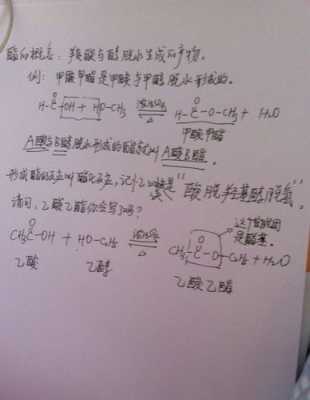 酯的概念：羧酸与醇脱水生成的产物。
例：甲酸甲酯是甲酸与甲醇脱水形成的。
O O
H-C-OH + HO-CH₃ 浓H₂SO₄ ⇌ △ H-C-O-CH₃ + H₂O
甲酸甲酯
A酸与B醇脱水形成的酯就叫A酸B酯。
形成酯的反应叫酯化反应，记忆 "酸脱羟基醇脱氢"。
请问，乙酸乙酯你会写了吗？
这个
是酯基.
O O
CH₃C-OH + HO-C₂H₅ 浓H₂SO₄ ⇌ △ CH₃-C-O-C₂H₅ + H₂O
乙酸 乙醇
乙酸乙酯